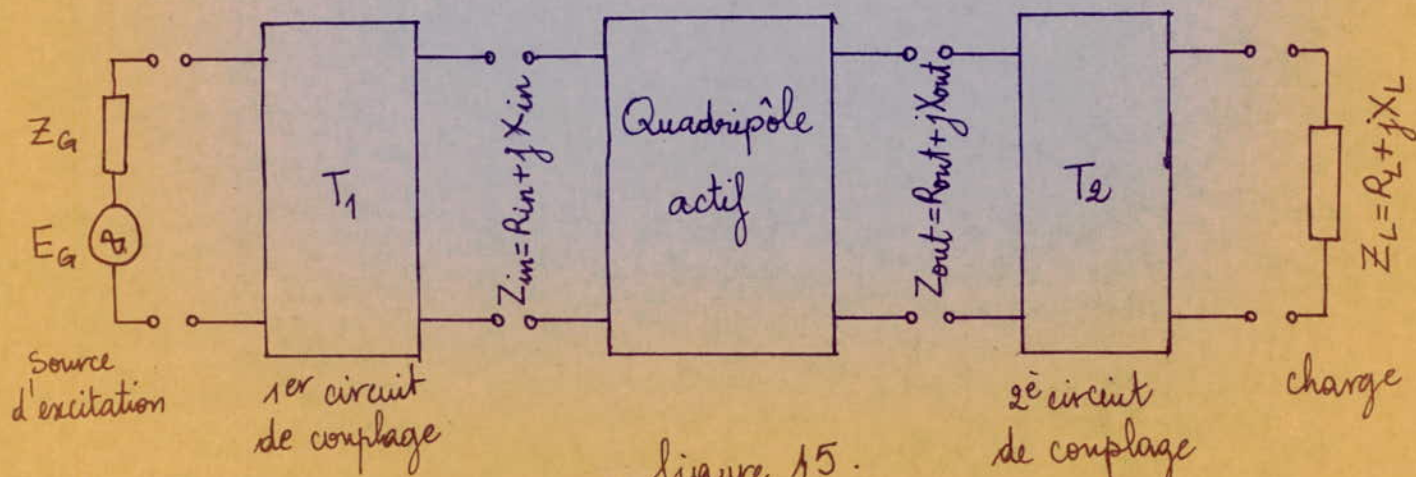 Z_G
E_G
Source
d'excitation
T_1
1er circuit
de couplage
Z_in = R_in + j X_in
Quadripôle
actif
Z_out = R_out + j X_out
T_2
2è circuit
de couplage
Z_L = R_L + j X_L
charge
figure 15.